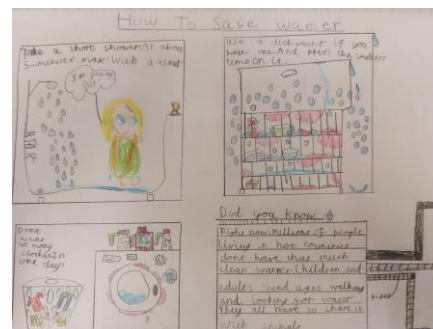 How To Save water
Take a short shower: At about
5-minute max: With a timer
I'm getting
out
Use a dishwasher if you
have one. And press the smallest
time On it.
Dont
wear
so many
clothes In
one day!
Did you know
Right now Millions of people
living in hot countries
dont have that much
clean water. Children and
adults spend ages walking
and looking for water
they all have to share it
with animals